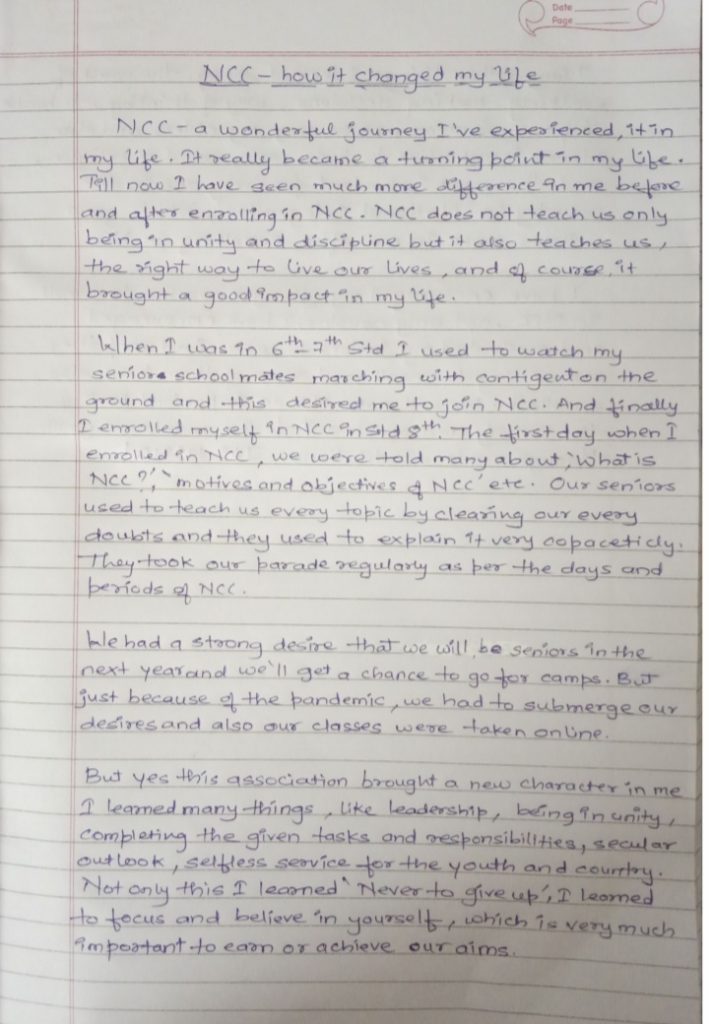 Date
Page
NCC - how it changed my life
NCC - a wonderful journey I've experienced, it in
my life. It really became a turning point in my life.
Till now I have seen much more difference in me before
and after enrolling in NCC. NCC does not teach us only
being in unity and discipline but it also teaches us,
the right way to live our lives, and of course, it
brought a good impact in my life.
When I was in 6th - 7th Std I used to watch my
seniors schoolmates marching with contigent on the
ground and this desired me to join NCC. And finally
I enrolled myself in NCC in Std 8th. The first day when I
enrolled in NCC, we were told many about, 'What is
NCC?', 'motives and objectives of NCC' etc. Our seniors
used to teach us every topic by clearing our every
doubts and they used to explain it very copaceticly.
They took our parade regularly as per the days and
periods of NCC.
We had a strong desire that we will be seniors in the
next year and we'll get a chance to go for camps. But
just because of the pandemic, we had to submerge our
desires and also our classes were taken online.
But yes this association brought a new character in me
I learned many things, like leadership, being in unity,
completing the given tasks and responsibilities, secular
outlook, selfless service for the youth and country.
Not only this I learned 'Never to give up', I learned
to focus and believe in yourself, which is very much
important to earn or achieve our aims.